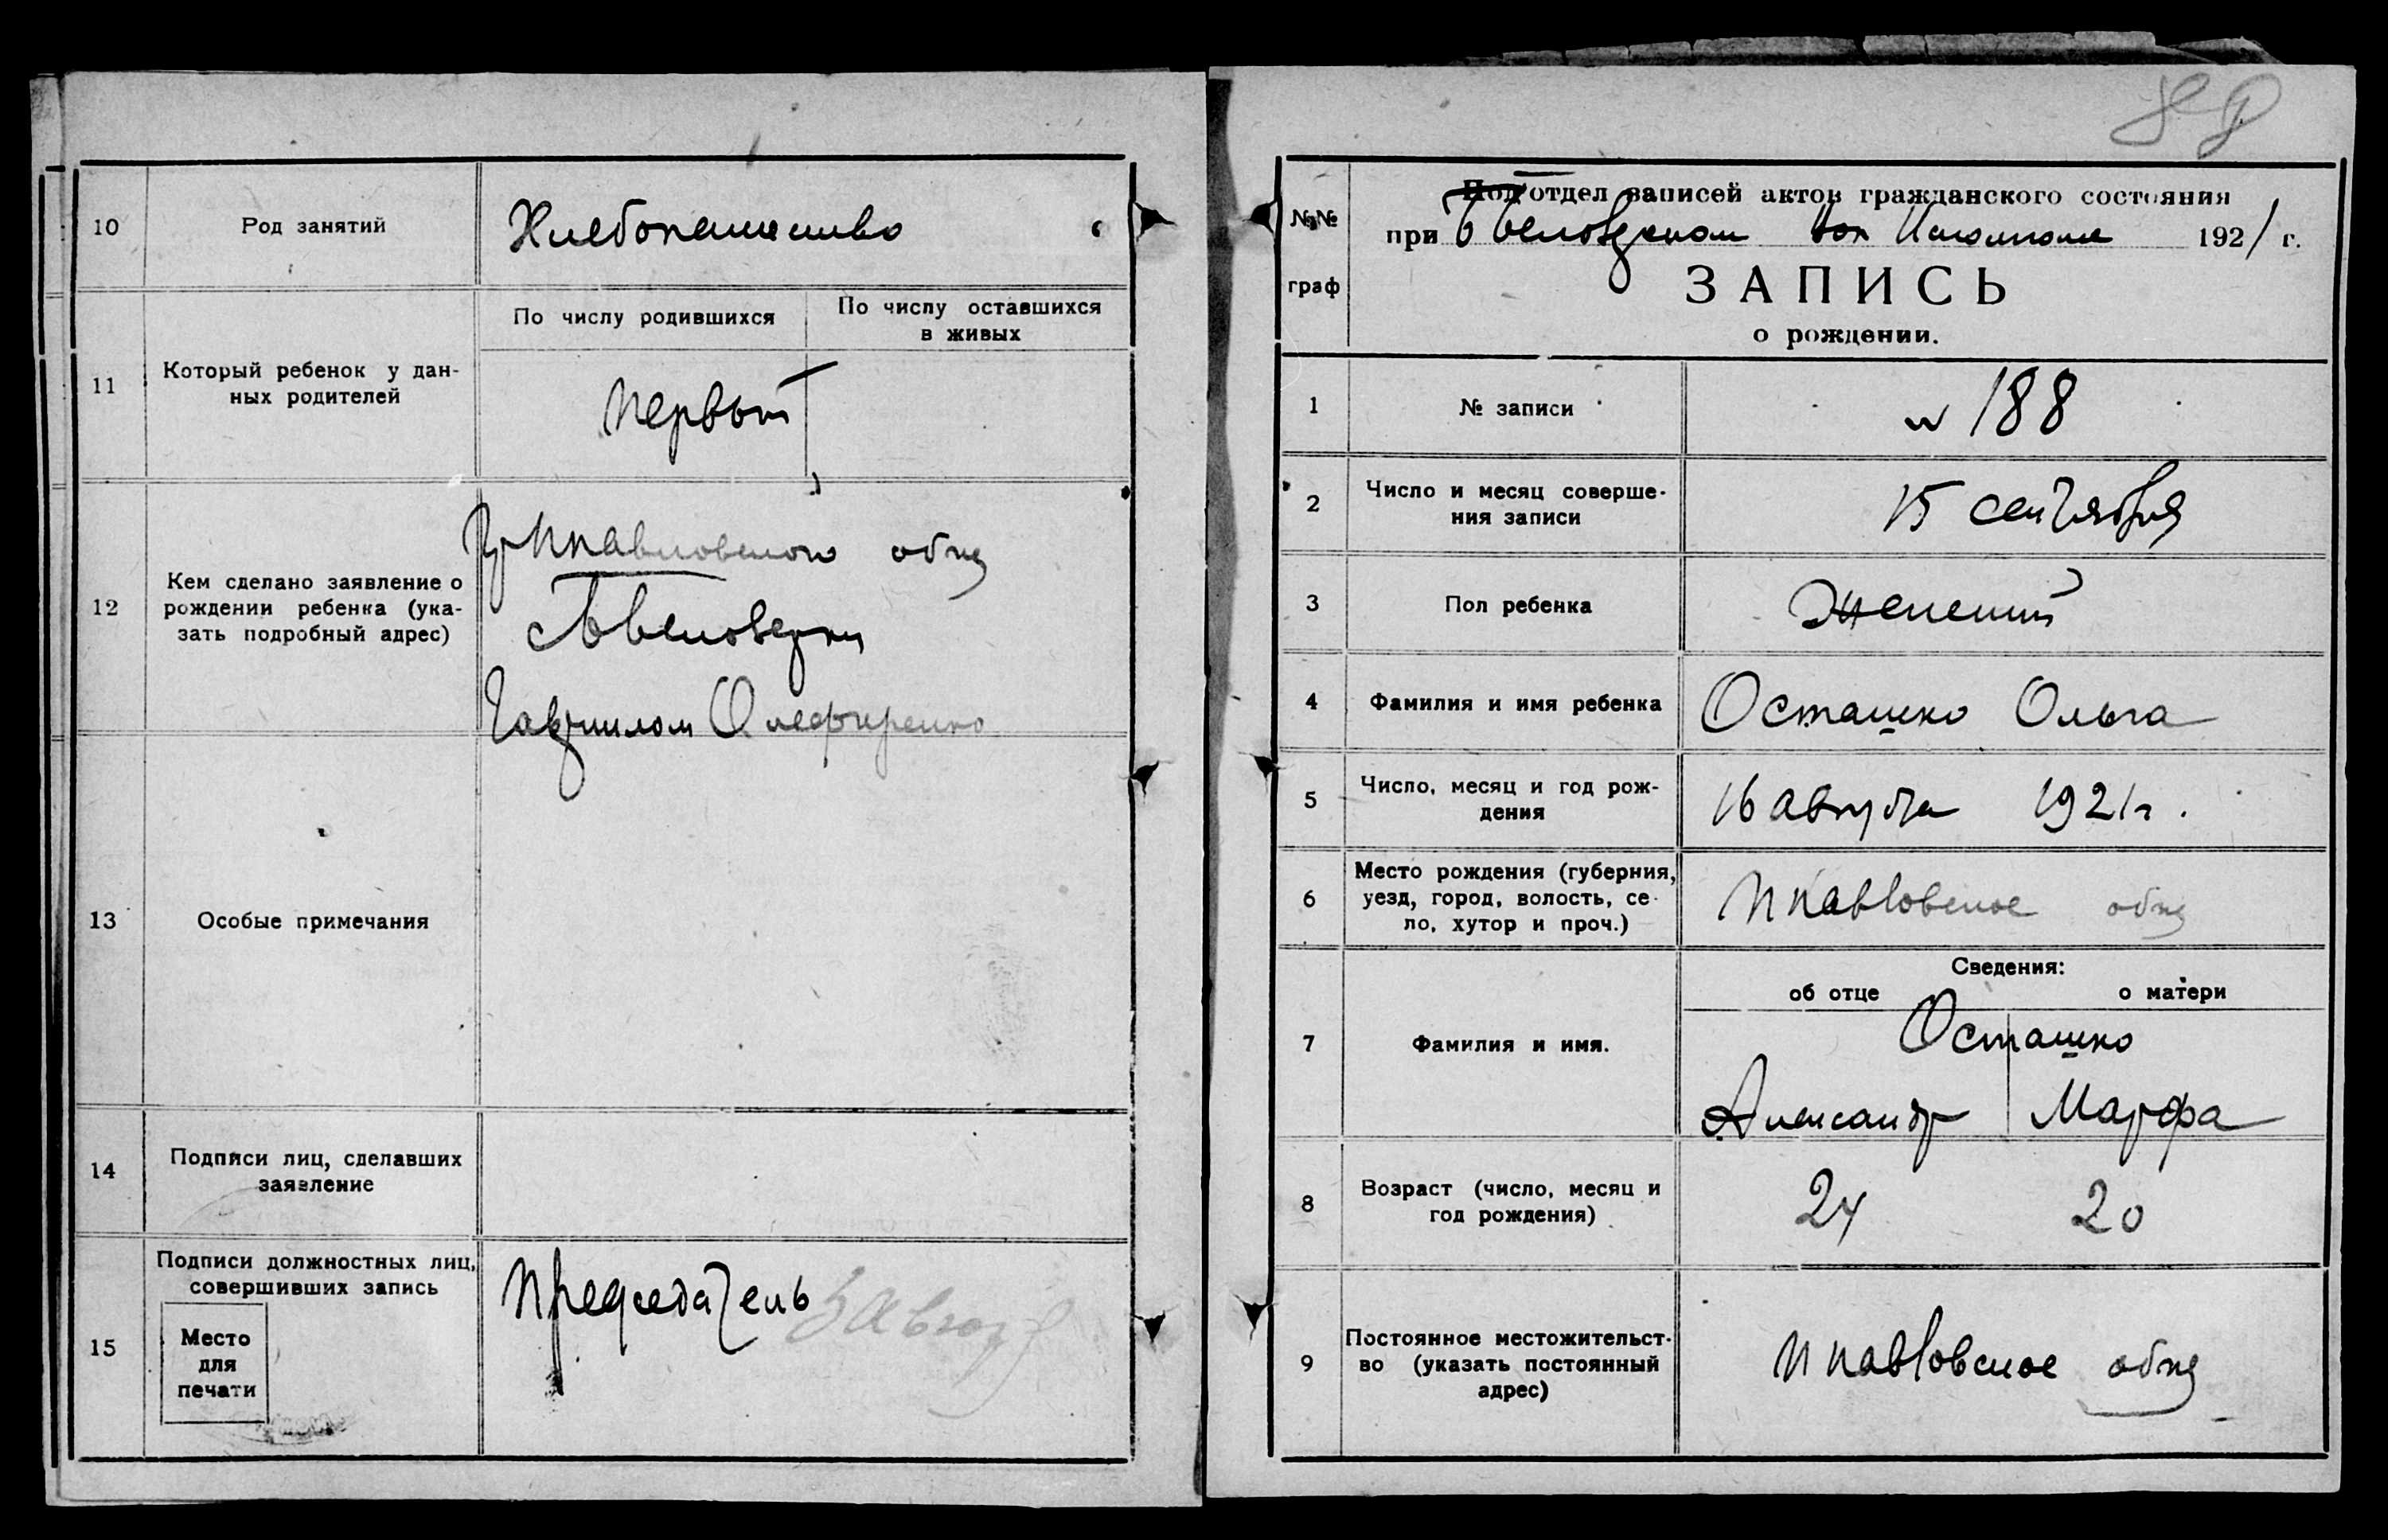 10
Род занятий
Хлебопашество
11
Который ребенок у дан-
ных родителей
По числу родившихся
По числу оставшихся
в живых
первый
12
Кем сделано заявление о
рождении ребенка (ука-
зать подробный адрес)
Гр Ппавловского общ
Гавриилом Олефиренко
13
Особые примечания
14
Подписи лиц, сделавших
заявление
15
Подписи должностных лиц,
совершивших запись
Место
для
печати
Председатель
№№
граф
Подотдел записей актов гражданского состояния
при Б Белозерском Вол Исполкоме 1921 г.
ЗАПИСЬ
о рождении.
1
№ записи
N 188
2
Число и месяц соверше-
ния записи
15 сентября
3
Пол ребенка
Женский
4
Фамилия и имя ребенка
Осташко Ольга
5
Число, месяц и год рож-
дения
16 августа 1921 г.
6
Место рождения (губерния,
уезд, город, волость, се-
ло, хутор и проч.)
Ппавловское общ
7
Фамилия и имя.
Сведения:
об отце
о матери
Осташко
Александр
Марфа
8
Возраст (число, месяц и
год рождения)
24
20
9
Постоянное местожительст-
во (указать постоянный
адрес)
Ппавловское общ